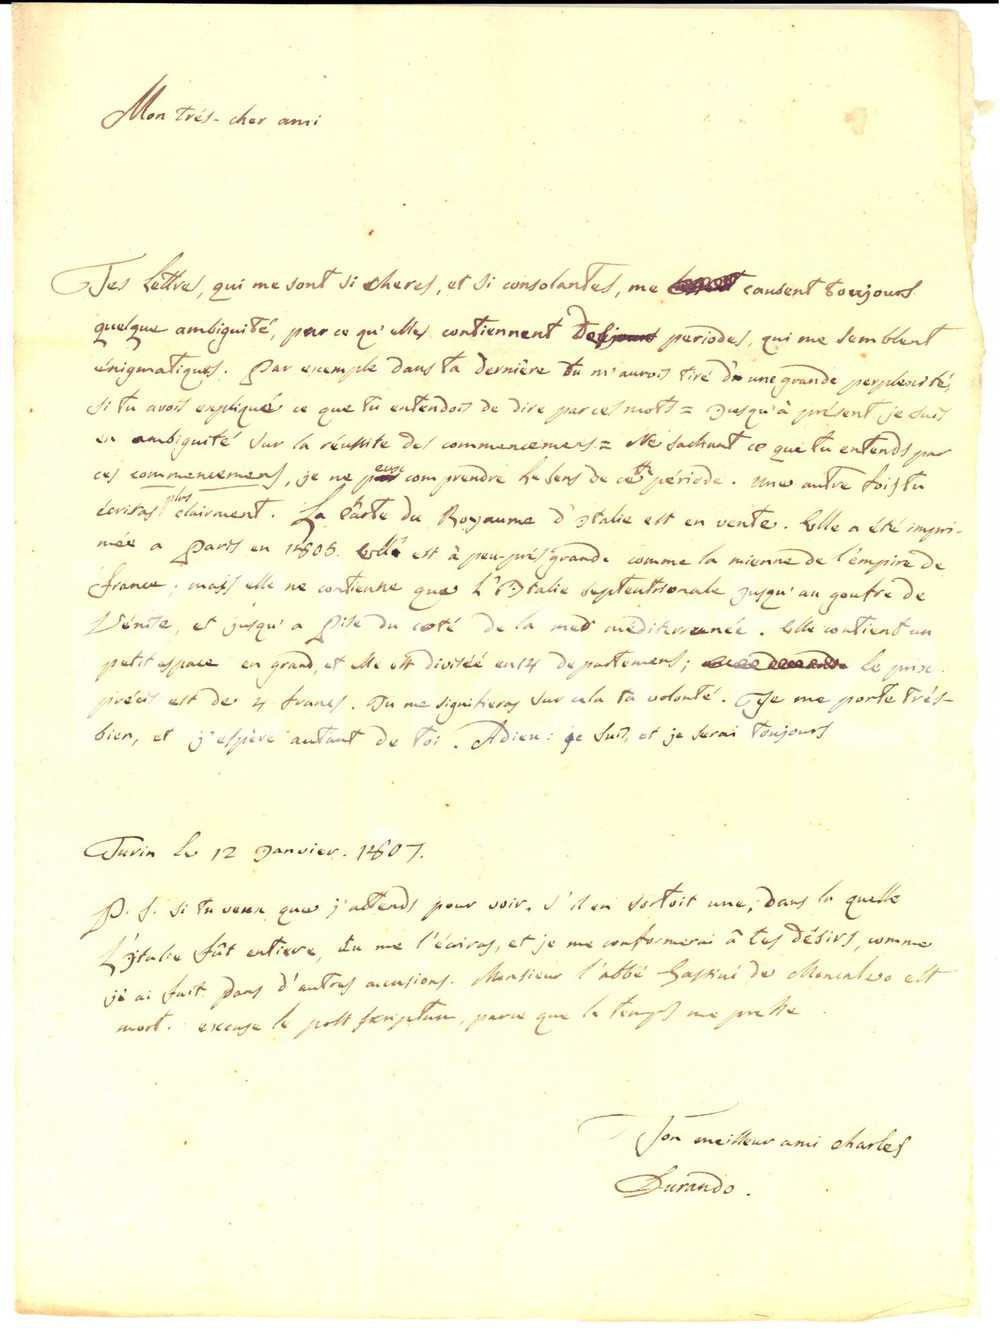 Mon trés-cher ami
Tes lettres, qui me sont si cheres, et si consolantes, me causent toujours
quelque ambiguité, par ce qu'elles contiennent des periodes, qui me semblent
énigmatiques. Par exemple dans ta dernière tu m'aurois tiré d'une grande perplexité,
si tu avois expliqué ce que tu entendois de dire par ces mots = Jusqu'à présent je suis
en ambiguité sur la réussite des commencemens = Ne sachant ce que tu entends par
ces commencemens, je ne peux comprendre le sens de cette période. Une autre fois tu
écriras plus clairment. La Carte du Royaume d'Italie est en vente. Elle a été impri-
mée a Paris en 1806. Elle est à peu-prés grande comme la mienne de l'émpire de
france; mais elle ne contienne que L'Italie septentrionale jusqu'au goufre de
Vénise, et jusqu'a Pise du coté de la mer méditerranée. Elle contient un
petit espace en grand, et elle est divisée en 14 departemens; le prix
précis est de 4 francs. Tu me signifieras sur cela ta volonté. Je me porte trés-
bien, et j'espère autant de toi. Adieu: je suis, et je serai toujours
Turin le 12 Janvier. 1807.
P. S. si tu veux que j'attends pour voir, s'il en sortoit une, dans la quelle
L'Italie fût entiere, tu me l'écriras, et je me conformerai à tes désirs, comme
jé ai fait dans d'autres occasions. Monsieur l'abbé de Moncalvo est
mort. excuse le post scriptum, parce que le temps me presse.
Ton meilleur ami Charles
Durando.